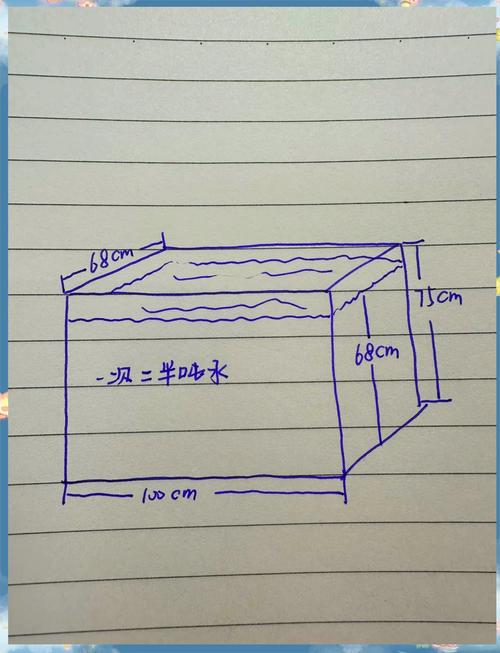 68cm
75cm
68cm
一次=半吨水
100cm